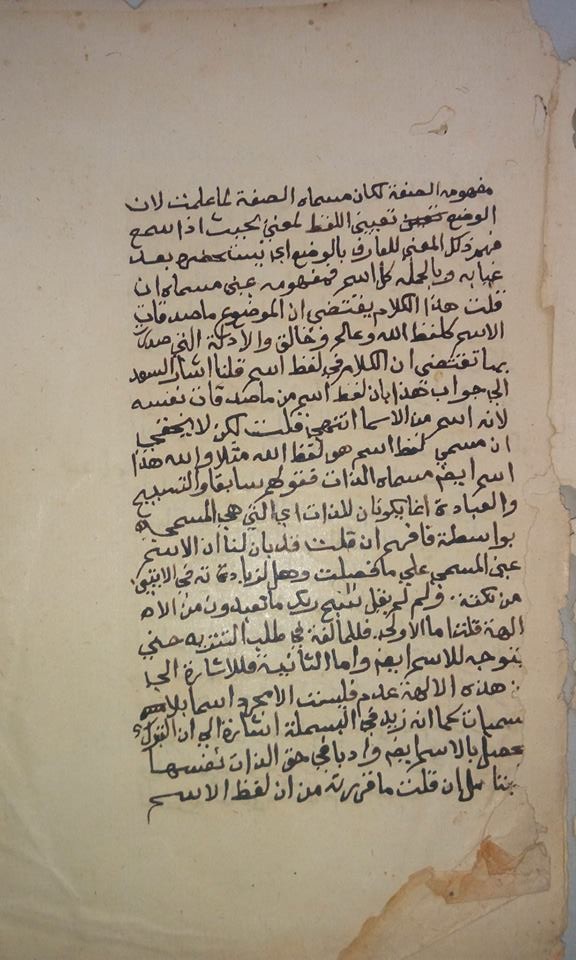 مفهومه الصفة لكان مسماه الصفة لما علمت لان
الوضع تعيين اللفظ لمعنى بحيث اذا سمع
فهم ذلك المعنى للعارف بالوضع اي بعد
غيابه وبالجملة كل اسم فمفهومه عين مسماه ان
قلت هذا الكلام يقتضي ان الموضوع ماصدقات
الاسم كلفظ الله وعالم وخالق والادلة التي
بها تقتضي ان الكلام في لفظ اسم قلنا اشار السعد
الي جواب هذا بان لفظ اسم من ماصدقات نفسه
لانه اسم من الاسما انتهي فقلت لكن لا يخفي
ان مسمي لفظ اسم هو لفظ الله مثلا والله هذا
اسم ايضا مسماه الذات فقولهم سابقا والتسبيح
والعبادة انما يكونان للذات اي التي هي المسمي
بواسطة فافهم ان قلت قد بان لنا ان الاسم
عين المسمي علي ما فصلت وهل لزيادته في الايتين
من نكتة ولم لم يقل سبح ربك ما تعبدون من الا
الهة قلنا اما الاولي فللمبالغة في طلب التنزيه حتي
يتوجه للاسم ايضا واما الثانية فللاشارة الي
ان هذه الالهة عدم فليست الا مجرد اسما بلا
مسميات كما انه زيد في البسملة اشارة الي ان التبرك
يحصل بالاسم ايضا وادبا في حق الذات نفسها
تامل ان قلت ما قررته من ان لفظ الاسم